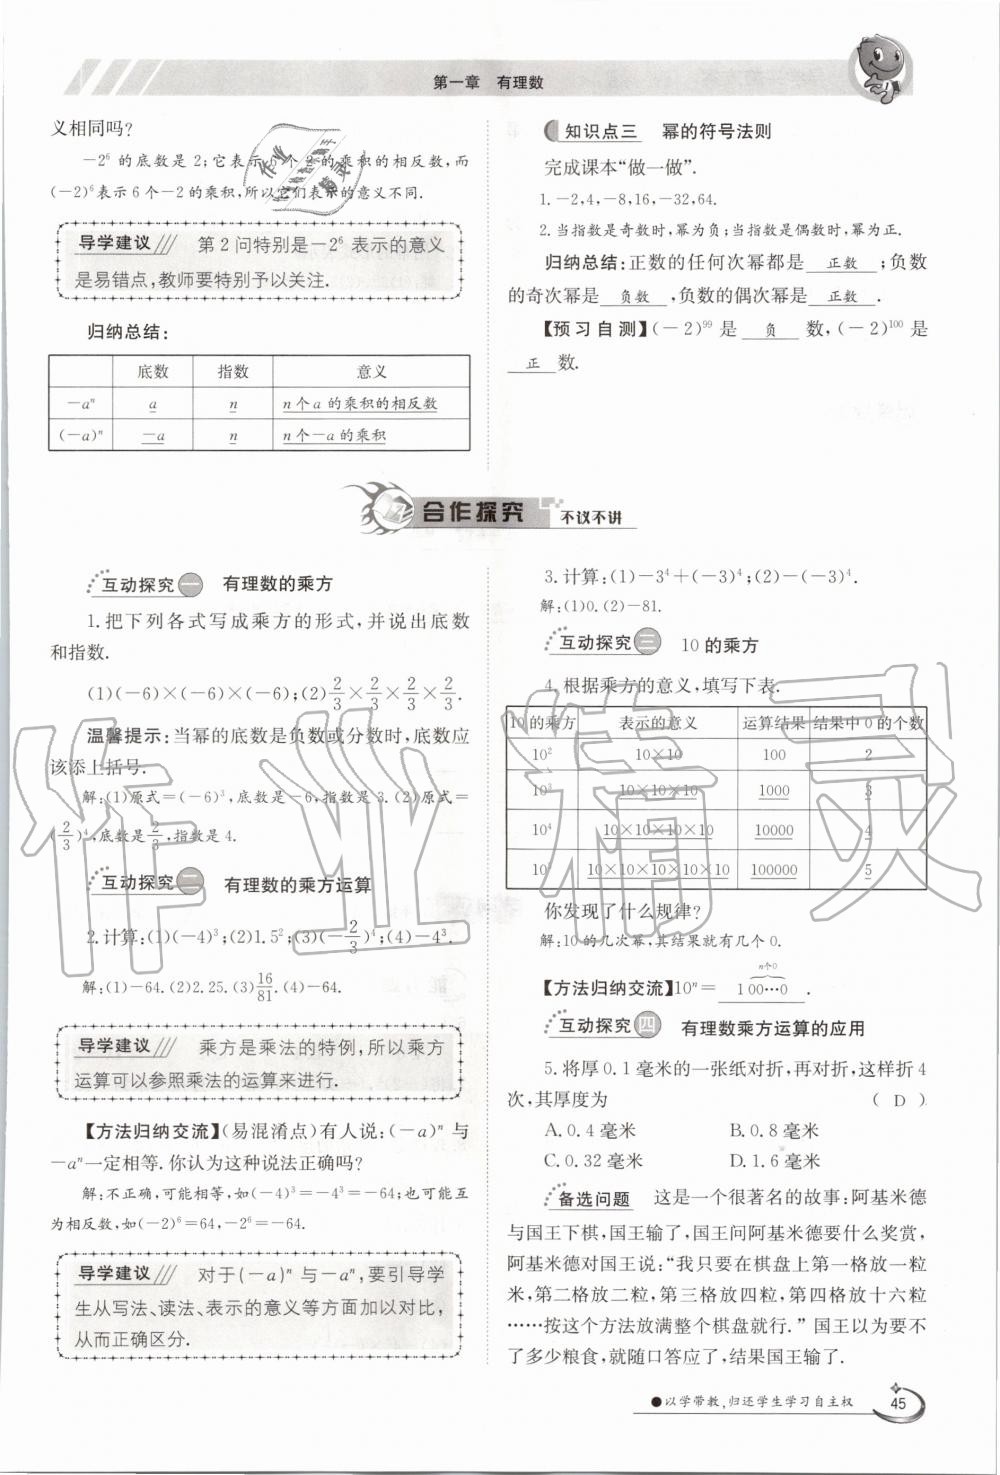 第一章　有理数
义相同吗?
－2⁶ 的底数是 2;它表示 6 个 2 的乘积的相反数,而
(－2)⁶ 表示 6 个－2 的乘积,所以它们表示的意义不同.
导学建议 第 2 问特别是－2⁶ 表示的意义
是易错点,教师要特别予以关注.
归纳总结:
底数 指数 意义
－aⁿ a n n 个 a 的乘积的相反数
(－a)ⁿ －a n n 个－a 的乘积
知识点三 幂的符号法则
完成课本“做一做”.
1.－2,4,－8,16,－32,64.
2.当指数是奇数时,幂为负;当指数是偶数时,幂为正.
归纳总结:正数的任何次幂都是 正数 ;负数
的奇次幂是 负数 ,负数的偶次幂是 正数 .
【预习自测】(－2)⁹⁹ 是 负 数,(－2)¹⁰⁰ 是
正 数.
合作探究 不议不讲
互动探究一 有理数的乘方
1.把下列各式写成乘方的形式,并说出底数
和指数.
(1)(－6)×(－6)×(－6);(2)2/3×2/3×2/3×2/3.
温馨提示:当幂的底数是负数或分数时,底数应
该添上括号.
解:(1)原式=(－6)³,底数是－6,指数是 3.(2)原式=
(2/3)⁴,底数是2/3,指数是 4.
互动探究二 有理数的乘方运算
2.计算:(1)(－4)³;(2)1.5²;(3)(－2/3)⁴;(4)－4³.
解:(1)－64.(2)2.25.(3)16/81.(4)－64.
导学建议 乘方是乘法的特例,所以乘方
运算可以参照乘法的运算来进行.
【方法归纳交流】(易混淆点)有人说:(－a)ⁿ 与
－aⁿ一定相等.你认为这种说法正确吗?
解:不正确,可能相等,如(－4)³=－4³=－64;也可能互
为相反数,如(－2)⁶=64,－2⁶=－64.
导学建议 对于(－a)ⁿ 与－aⁿ,要引导学
生从写法、读法、表示的意义等方面加以对比,
从而正确区分.
3.计算:(1)－3⁴+(－3)⁴;(2)－(－3)⁴.
解:(1)0.(2)－81.
互动探究三 10 的乘方
4.根据乘方的意义,填写下表.
10 的乘方 表示的意义 运算结果 结果中 0 的个数
10² 10×10 100 2
10³ 10×10×10 1000 3
10⁴ 10×10×10×10 10000 4
10⁵ 10×10×10×10×10 100000 5
你发现了什么规律?
解:10 的几次幂,其结果就有几个 0.
n个0
【方法归纳交流】10ⁿ= 1 00…0 .
互动探究四 有理数乘方运算的应用
5.将厚 0.1 毫米的一张纸对折,再对折,这样折 4
次,其厚度为 ( D )
A.0.4 毫米 B.0.8 毫米
C.0.32 毫米 D.1.6 毫米
备选问题 这是一个很著名的故事:阿基米德
与国王下棋,国王输了,国王问阿基米德要什么奖赏,
阿基米德对国王说:“我只要在棋盘上第一格放一粒
米,第二格放二粒,第三格放四粒,第四格放十六粒
……按这个方法放满整个棋盘就行.”国王以为要不
了多少粮食,就随口答应了,结果国王输了.
●以学带教,归还学生学习自主权
45
作业精灵